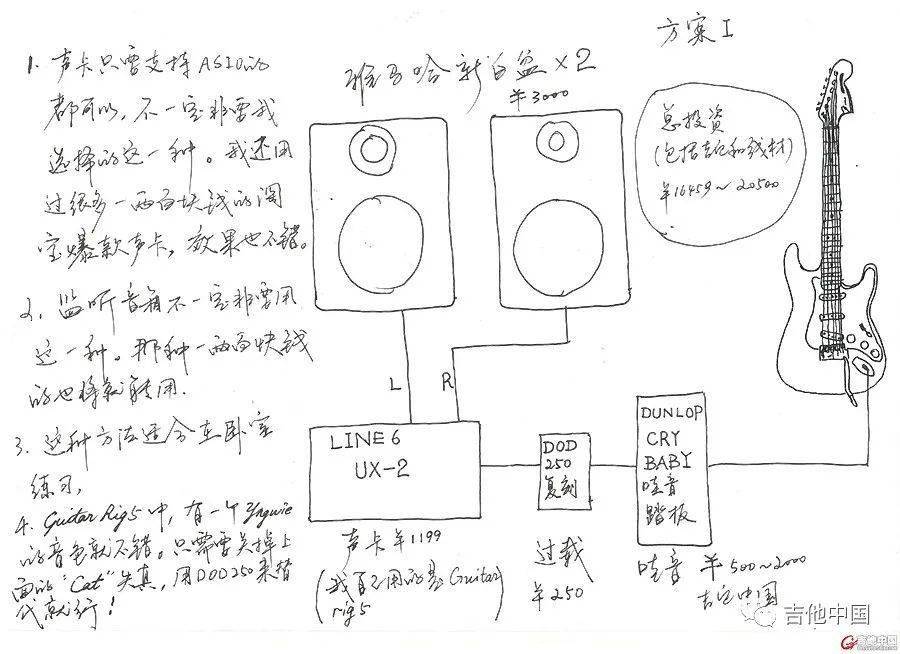 方案I
1. 声卡只需支持ASIO的
都可以，不一定非要我
选择的这一种。我还用
过很多一两百块钱的淘
宝爆款声卡，效果也不错。
2. 监听音箱不一定非要用
这一种。那种一两百块钱
的也将就能用.
3. 这种方法适合在卧室
练习.
4. Guitar Rig5中，有一个Yngwie
的音色就不错。只需要关掉上
面的“Cat”失真，用DOD250来替
代就行！
雅马哈新白盆×2
¥3000
总投资
(包括吉他和线材)
¥16459～20500
L
R
LINE6
UX-2
声卡¥1199
(我自己用的是Guitar
rig5
DOD
250
复刻
过载
¥250
DUNLOP
CRY
BABY
哇音
踏板
哇音 ¥500～2000
吉他中国
吉他中国
吉他中国